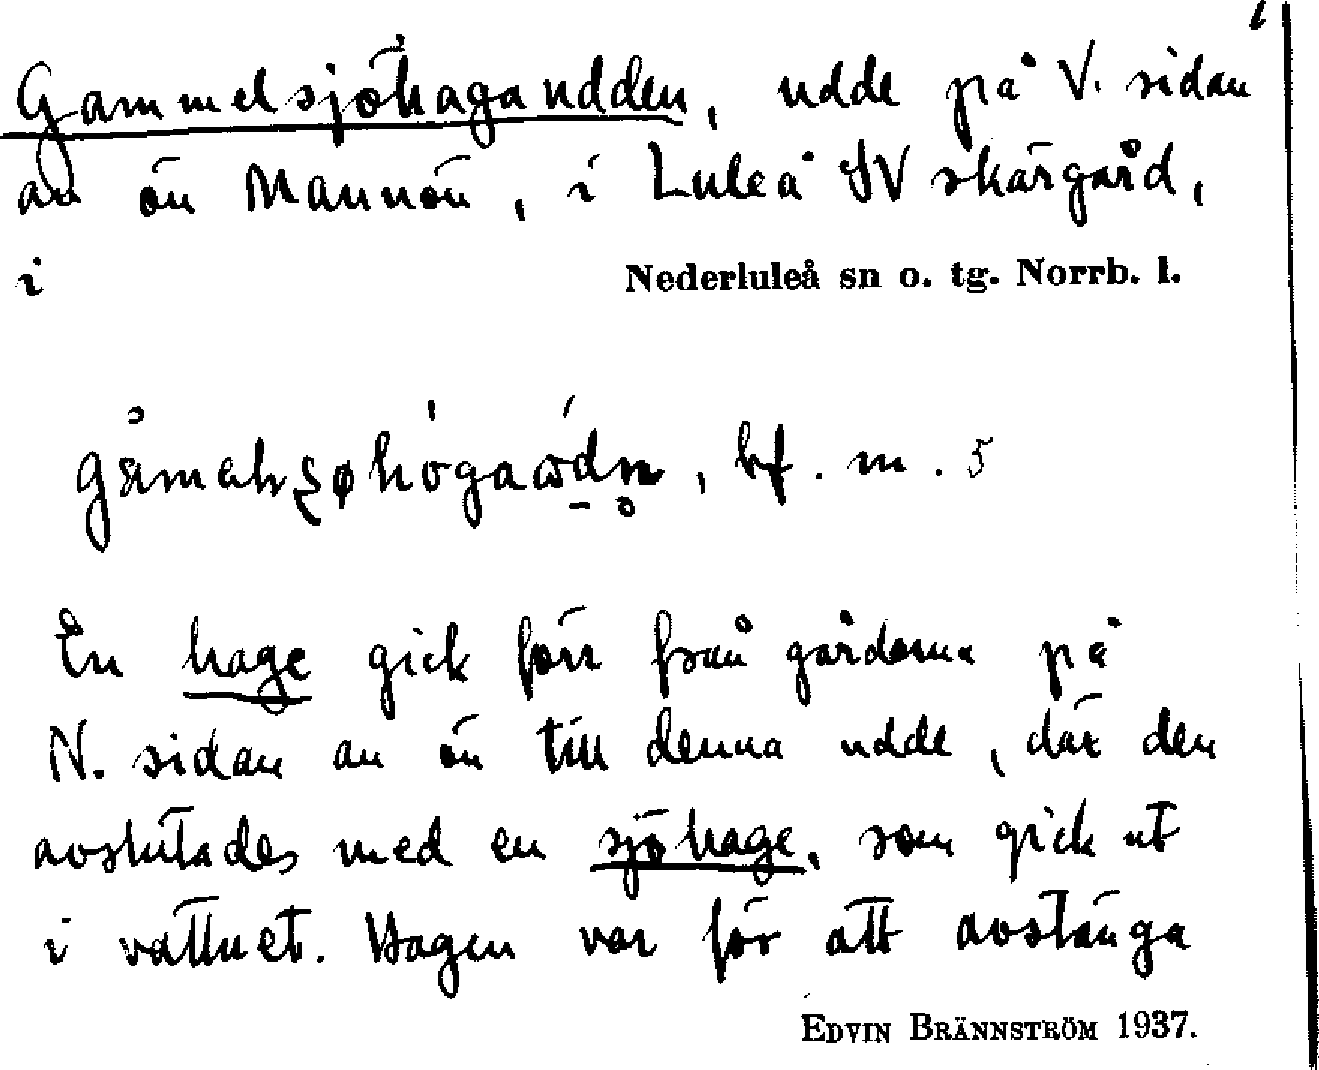 Gammelsjöhagaudden, udde på V. sidan
av ön Mannön, i Luleå SV skärgård,
i Nederluleå sn o. tg. Norrb. l.
bf. m. 5
En hage gick förr från gårdarna på
N. sidan av ön till denna udde, där den
avslutades med en sjöhage, som gick ut
i vattnet. Hagen var för att avstänga
EDVIN BRÄNNSTRÖM 1937.